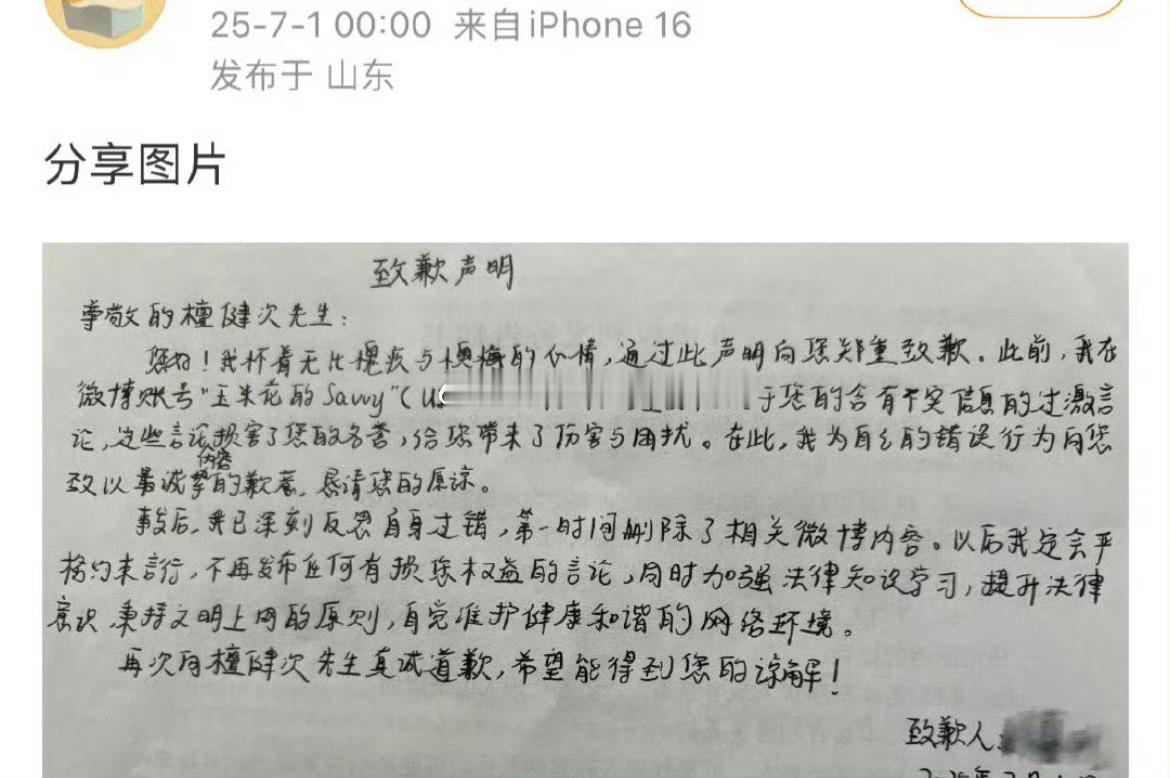 25-7-1 00:00 来自 iPhone 16
发布于 山东
分享图片
致歉声明
尊敬的檀健次先生：
您好！我怀着无比愧疚与懊悔的心情，通过此声明向您郑重致歉。此前，我在
微博账号“玉米花的Savvy”（u 于您的含有不实信息的过激言
论，这些言论损害了您的名誉，给您带来了伤害与困扰。在此，我为自己的错误行为向您
内容
致以最诚挚的歉意，恳请您的原谅。
事发后，我已深刻反思自身过错，第一时间删除了相关微博内容。以后我定会严
格约束言行，不再发布任何有损您权益的言论，同时加强法律知识学习，提升法律
意识，秉持文明上网的原则，自觉维护健康和谐的网络环境。
再次向檀健次先生真诚道歉，希望能得到您的谅解！
致歉人